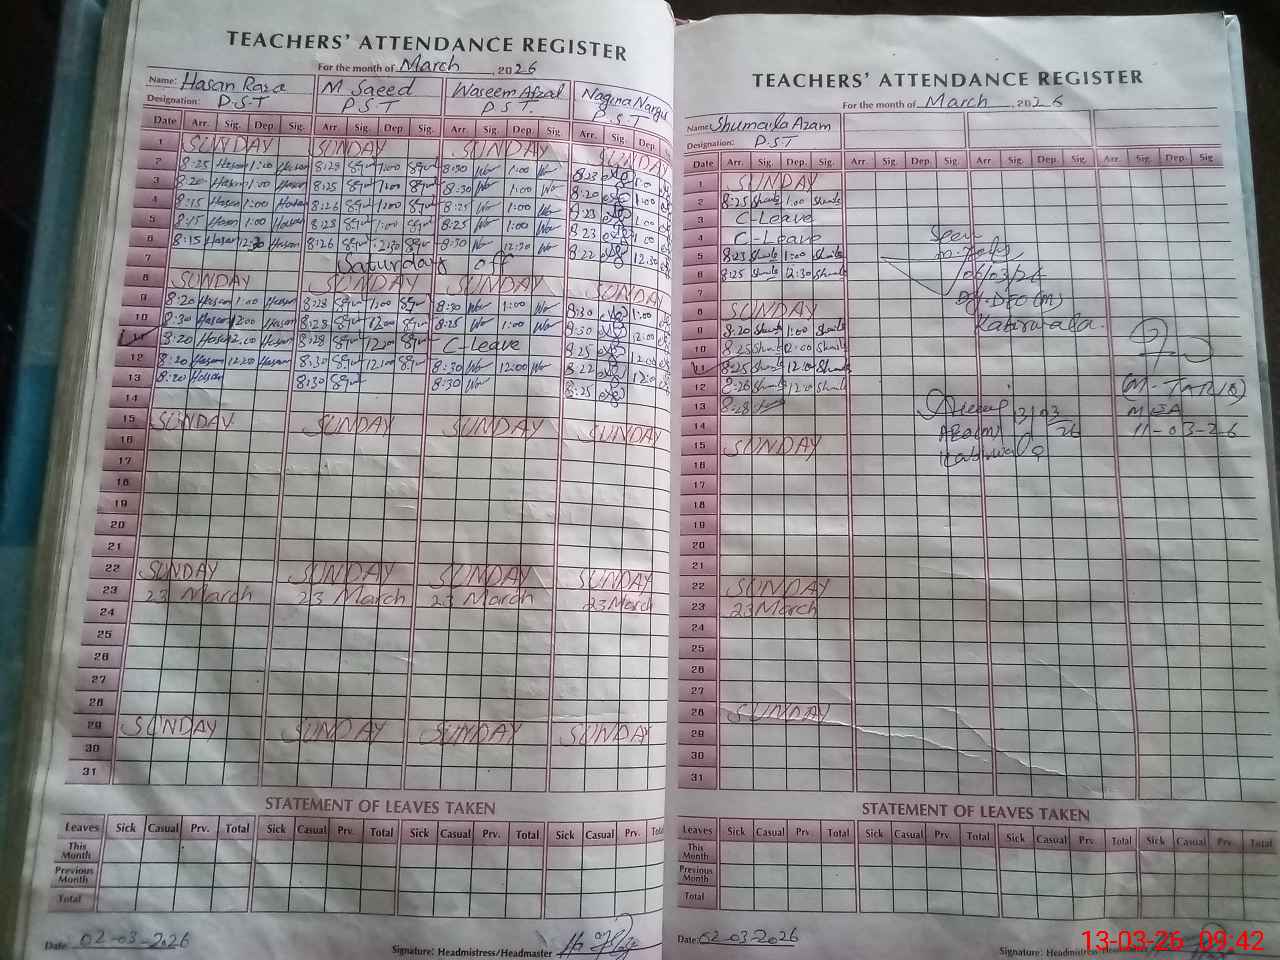 TEACHERS' ATTENDANCE REGISTER
For the month of March, 2026
Name: Hasan Raza M Saeed Waseem Afzal Nagina Nargis
Designation: P.S.T P.S.T P.S.T. P.S.T
Date Arr. Sig. Dep. Sig. Arr. Sig. Dep. Sig. Arr. Sig. Dep. Sig. Arr. Sig. Dep.
1 SUNDAY SUNDAY SUNDAY SUNDAY
2 8:25 Hasan 1:00 Hasan 8:28 1:00 8:30 1:00 8:23 1:00
3 8:20 Hasan 1:00 Hasan 8:25 1:00 8:30 1:00 8:20 1:00
4 8:15 Hasan 1:00 Hasan 8:26 1:00 8:25 1:00 8:23 1:00
5 8:15 Hasan 1:00 Hasan 8:28 1:00 8:25 1:00 8:23 1:00
6 8:15 Hasan 12:30 Hasan 8:26 12:30 8:30 12:30 8:22 12:30
7 Saturday off
8 SUNDAY SUNDAY SUNDAY SUNDAY
9 8:20 Hasan 1:00 Hasan 8:28 1:00 8:30 1:00 8:30 1:00
10 8:30 Hasan 12:00 Hasan 8:28 12:00 8:25 1:00 8:30 12:00
11 8:20 Hasan 12:00 Hasan 8:28 12:00 C-Leave 8:25 12:00
12 8:20 Hasan 12:00 Hasan 8:30 12:00 8:30 12:00 8:22 12:00
13 8:20 Hasan 8:30 8:30 8:25
14
15 SUNDAY SUNDAY SUNDAY SUNDAY
16
17
18
19
20
21
22 SUNDAY SUNDAY SUNDAY SUNDAY
23 23 March 23 March 23 March 23 March
24
25
26
27
28
29 SUNDAY SUNDAY SUNDAY SUNDAY
30
31
STATEMENT OF LEAVES TAKEN
Leaves Sick Casual Prv. Total Sick Casual Prv. Total Sick Casual Prv. Total Sick Casual Prv. Total
This Month
Previous Month
Total
Date: 02-03-2026
Signature: Headmistress/Headmaster
TEACHERS' ATTENDANCE REGISTER
For the month of March, 2026
Name: Shumaila Azam
Designation: P.S.T
Date Arr. Sig. Dep. Sig. Arr. Sig. Dep. Sig. Arr. Sig. Dep. Sig. Arr. Sig. Dep. Sig
1 SUNDAY
2 8:25 1:00
3 C-Leave
4 C-Leave
5 8:23 1:00
6 8:25 12:30
7
8 SUNDAY
9 8:20 1:00
10 8:25 12:00
11 8:25 12:00
12 8:26 12:00
13 8:28
14
15 SUNDAY
16
17
18
19
20
21
22 SUNDAY
23 23 March
24
25
26
27
28 SUNDAY
29
30
31
Seen
06/03/26
Dy-DEO (M)
Kabirwala.
(M-TARIQ)
MEA
11-03-26
13/03/26
AEO(M)
Kabirwala
STATEMENT OF LEAVES TAKEN
Leaves Sick Casual Prv. Total Sick Casual Prv. Total Sick Casual Prv. Total Sick Casual Prv. Total
This Month
Previous Month
Total
Date: 02-03-2026
Signature: Headmistress/Headmaster
13-03-26 09:42